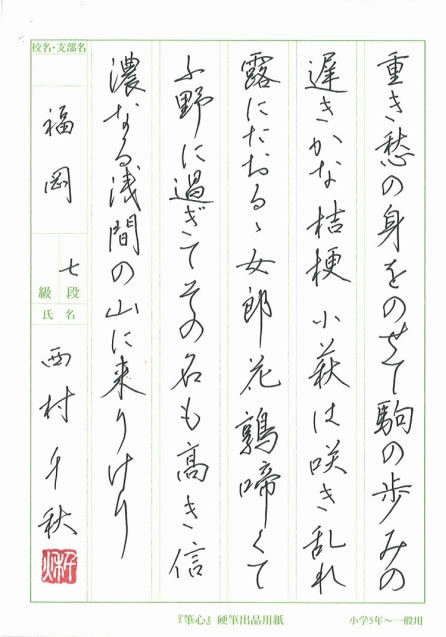 重き愁の身をのせて駒の歩みの
遅きかな桔梗小萩は咲き乱れ
露にたおるゝ女郎花鶉啼くて
ふ野に過ぎてその名も高き信
濃なる浅間の山に来りけり
校名・支部名
福岡
七
段
級
氏名
西村千秋
『筆心』硬筆出品用紙
小学5年〜一般用